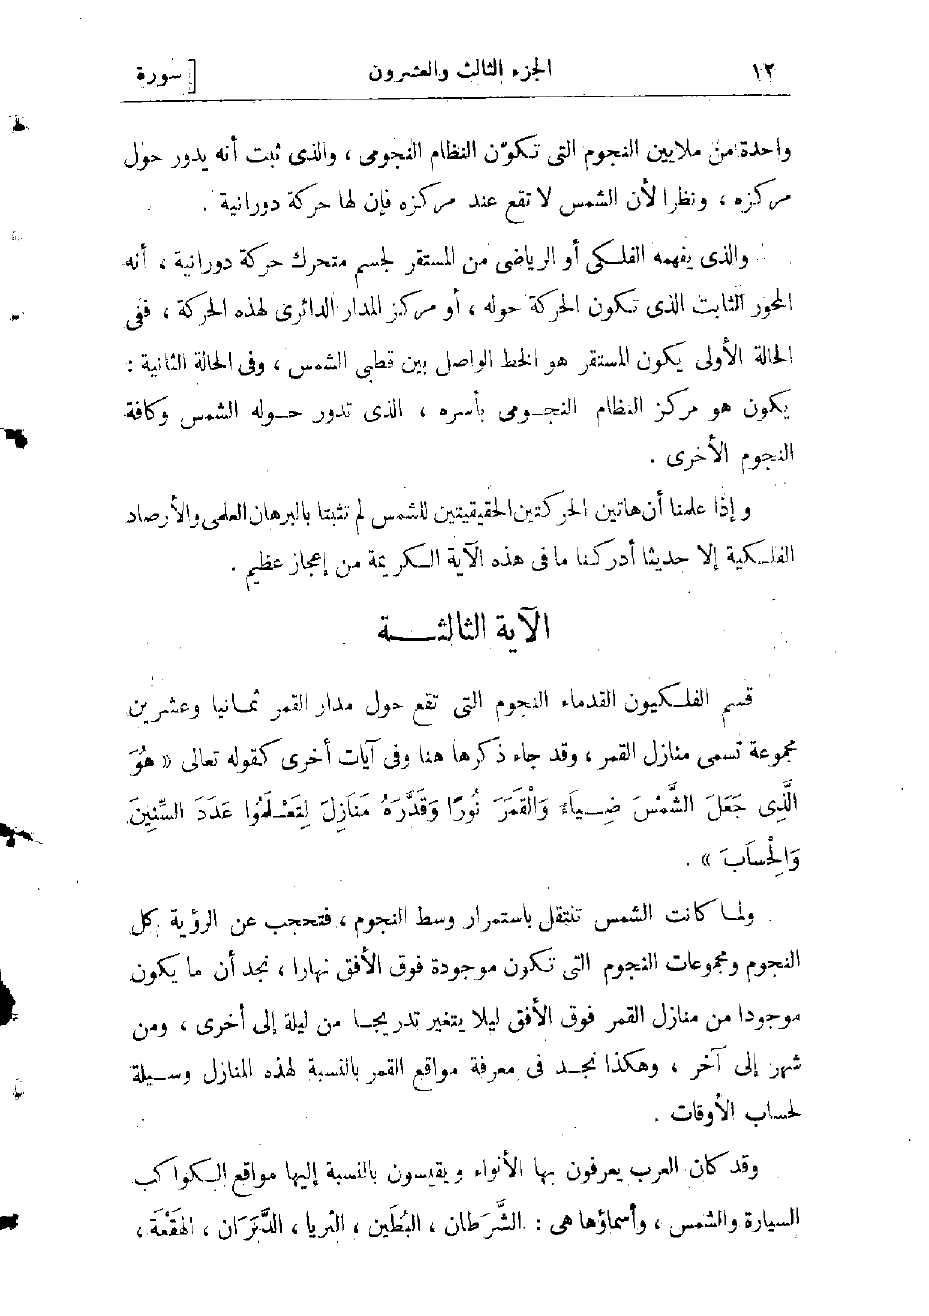 ١٢ الجزء الثالث والعشرون [ سورة
واحدة من ملايين النجوم التى تكوّن النظام النجومى ، والذى ثبت أنه يدور حول
مركزه ، ونظرا لأن الشمس لا تقع عند مركزه فإن لها حركة دورانية .
والذى يفهمه الفلكى أو الرياضى من المستقر لجسم متحرك حركة دورانية ، أنه
المحور الثابت الذى تكون الحركة حوله ، أو مركز المدار الدائرى لهذه الحركة ، ففى
الحالة الأولى يكون المستقر هو الخط الواصل بين قطبى الشمس ، وفى الحالة الثانية :
يكون هو مركز النظام النجومى بأسره ، الذى تدور حوله الشمس وكافة
النجوم الأخرى .
وإذا علمنا أن هاتين الحركتين الحقيقيتين للشمس لم تثبتا بالبرهان العلمى والأرصاد
الفلكية إلا حديثا أدركنا ما فى هذه الآية الكريمة من إعجاز عظيم .
الآية الثالثة
قسم الفلكيون القدماء النجوم التى تقع حول مدار القمر ثمانيا وعشرين
مجموعة تسمى منازل القمر ، وقد جاء ذكرها هنا وفى آيات أخرى كقوله تعالى « هُوَ
الَّذِى جَعَلَ الشَّمْسَ ضِيَاءً وَالْقَمَرَ نُورًا وَقَدَّرَهُ مَنَازِلَ لِتَعْلَمُوا عَدَدَ السِّنِينَ
وَالْحِسَابَ » .
ولما كانت الشمس تنتقل باستمرار وسط النجوم ، فتحجب عن الرؤية كل
النجوم ومجموعات النجوم التى تكون موجودة فوق الأفق نهارا ، نجد أن ما يكون
موجودا من منازل القمر فوق الأفق ليلا يتغير تدريجا من ليلة إلى أخرى ، ومن
شهر إلى آخر ، وهكذا نجد فى معرفة مواقع القمر بالنسبة لهذه المنازل وسيلة
لحساب الأوقات .
وقد كان العرب يعرفون بها الأنواء ويقيسون بالنسبة إليها مواقع الكواكب
السيارة والشمس ، وأسماؤها هى : الشَّرَطان ، البُطَين ، الثريا ، الدَّبَرَان ، الهَقْعَة ،